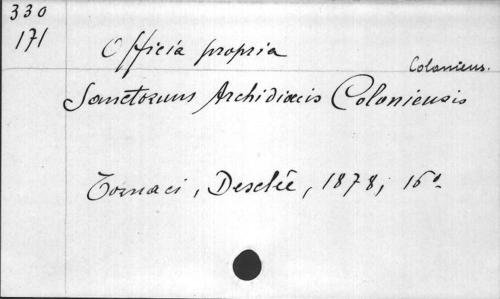 330
171
Officia propria
Coloniens.
Sanctorum Archidioecis Coloniensis
Tornaci, Desclée, 1878, 16°.